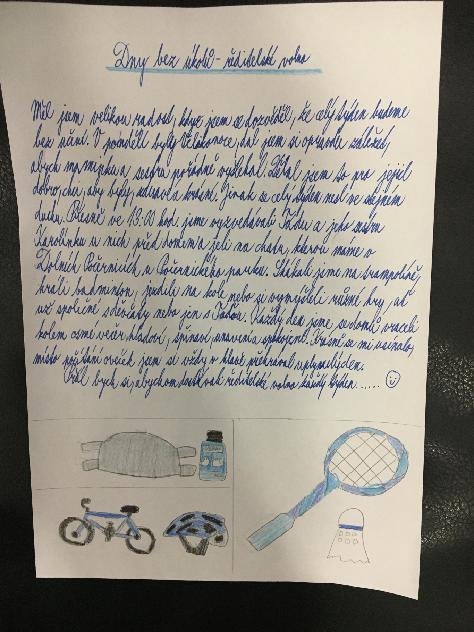 Dny bez úkolů - ředitelské volno
Měl jsem velikou radost, když jsem se dozvěděl, že celý týden budeme
bez učení. V pondělí byly Velikonoce, dal jsem si opravdu záležet,
abych maminku a sestru pořádně vyšlehal. Dělal jsem to pro jejich
dobro, aby byly zdravé a krásné. Jinak se celý týden nesl ve stejném
duchu. Přesně ve 13.00 hod. jsme vyzvedávali Tádu a jeho sestru
Karolínku u nich před domem a jeli na chatu, kterou máme v
Dolních Počernicích, u Počernického parku. Skákali jsme na trampolíně,
hráli badminton, jezdili na kole nebo si vymýšleli různé hry, ať
už společné s děvčaty nebo jen s Tádou. Každý den jsme se domů vraceli
kolem osmé večer hladoví, špinaví, unavení a spokojení. Krásně se mi usínalo,
místo počítání oveček jsem si vždy v hlavě přehrával uplynulý den.
Přál bych si, abychom dostávali ředitelské volno každý týden.....